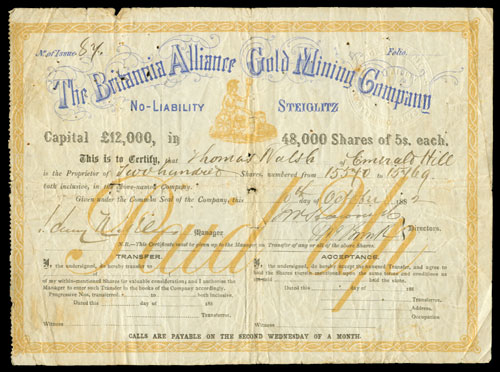 No. of Issue 84 Folio
The Britannia Alliance Gold Mining Company
No-Liability Steiglitz
Capital £12,000, in 48,000 Shares of 5s. each.
This is to Certify, that Thomas Walsh of Emerald Hill
is the Proprietor of Two hundred Shares, numbered from to
both inclusive, in the above-named Company.
Given under the Common Seal of the Company, this day of October 1882
Manager
Directors.
N.B.—This Certificate must be given up to the Manager on Transfer of any or all of the above Shares.
Paid Up
TRANSFER.
I, the undersigned, do hereby transfer to
of my within-mentioned Shares (for valuable consideration); and I authorise the
Manager to enter such Transfer in the books of the Company accordingly.
Progressive Nos. transferred, to both inclusive.
Dated this day of 188
Transferror.
Witness
ACCEPTANCE.
I, the undersigned, do hereby accept the annexed Transfer, and agree to
hold the Shares therein mentioned upon the same conditions as
held the same.
Dated this day of 188
Transferree.
Address.
Occupation.
Witness
CALLS ARE PAYABLE ON THE SECOND WEDNESDAY OF A MONTH.